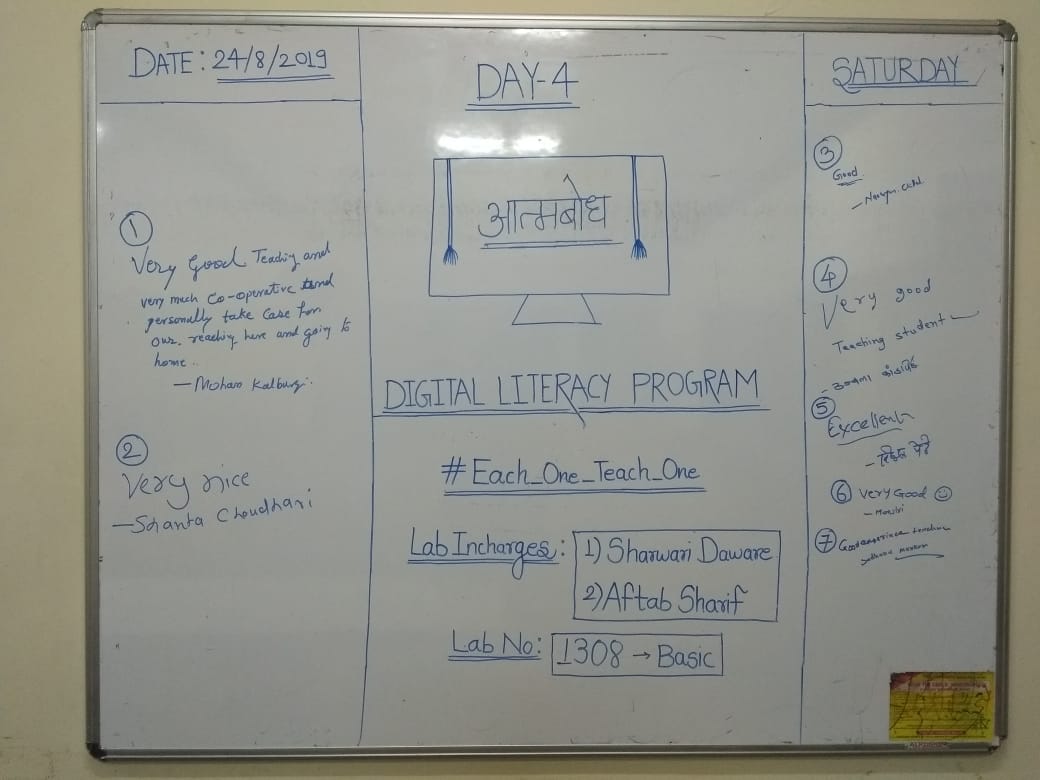 DATE: 24/8/2019
DAY-4
SATURDAY
①
Very Good Teaching and
very much Co-operative and
personally take Case for
our. reaching here and going to
home..
— Mohan Kalburgi.
②
Very nice
— Shanta Choudhari
आत्मबोध
DIGITAL LITERACY PROGRAM
#Each_One_Teach_One
Lab Incharges: 1) Sharwari Daware
2) Aftab Sharif
Lab No: 1308 → Basic
③
Good
④
Very good
Teaching student
⑤
Excellent
⑥ Very Good ☺
⑦ Good